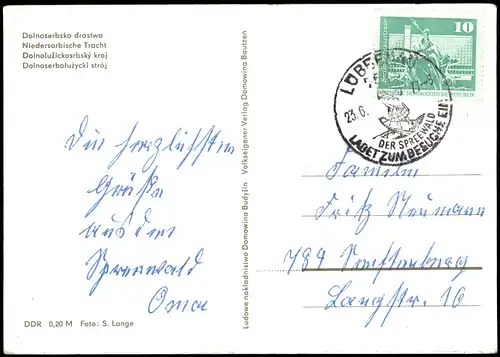 Dolnoserbska drastwa
Niedersorbische Tracht
Dolnolužickosrbský kroj
Dolnoserbołużycki strój
Die herzlichsten
Grüße
aus dem
Spreewald
Oma
DDR 0,20 M Foto: S. Lange
Ludowe nakładnistwo Domowina Budyšin Volkseigener Verlag Domowina Bautzen
10
DEUTSCHE DEMOKRATISCHE REPUBLIK
LÜBBENAU
23.6.
DER SPREEWALD
LADET ZUM BESUCHE EIN
Familie
Fritz Neumann
789 Senftenberg
Langstr. 16